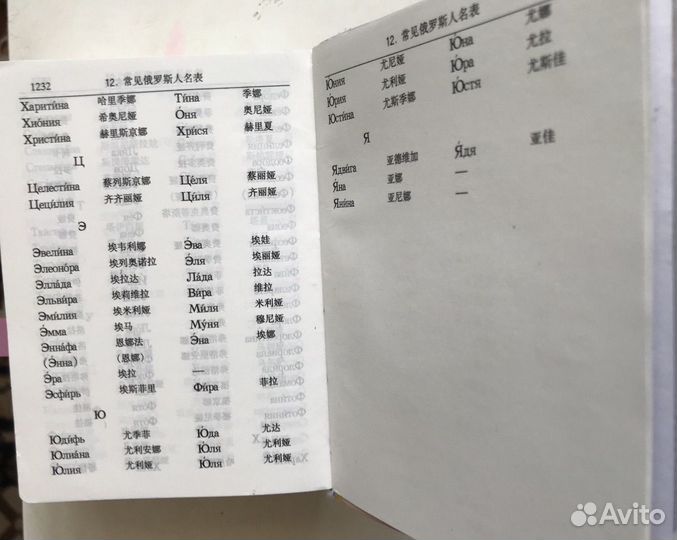 1232 12. 常见俄罗斯人名表
Харити́на 哈里季娜 Ти́на 季娜
Хио́ния 希奥尼娅 О́ня 奥尼娅
Христи́на 赫里斯京娜 Хри́ся 赫里夏
Ц
Целести́на 蔡列斯京娜 Це́ля 蔡丽娅
Цеци́лия 齐齐丽娅 Ци́ля 齐丽娅
Э
Эвели́на 埃韦利娜 Э́ва 埃娃
Элеоно́ра 埃列奥诺拉 Э́ля 埃丽娅
Элла́да 埃拉达 Ла́да 拉达
Эльви́ра 埃莉维拉 Ви́ра 维拉
Эми́лия 埃米利娅 Ми́ля 米利娅
Э́мма 埃马 Му́ня 穆尼娅
Энна́фа 恩娜法 Э́на 埃娜
(Э́нна) (恩娜)
Э́ра 埃拉 —
Эсфи́рь 埃斯菲里 Фи́ра 菲拉
Ю
Юди́фь 尤季菲 Ю́да 尤达
Юлиа́на 尤利安娜 Ю́ля 尤利娅
Ю́лия 尤利娅 Ю́ля 尤利娅
12. 常见俄罗斯人名表
Ю́ния 尤尼娅 Ю́на 尤娜
Ю́рия 尤利娅 Ю́ра 尤拉
Юсти́на 尤斯季娜 Ю́стя 尤斯佳
Я
Ядви́га 亚德维加 Я́дя 亚佳
Я́на 亚娜 —
Яни́на 亚尼娜 —
Avito